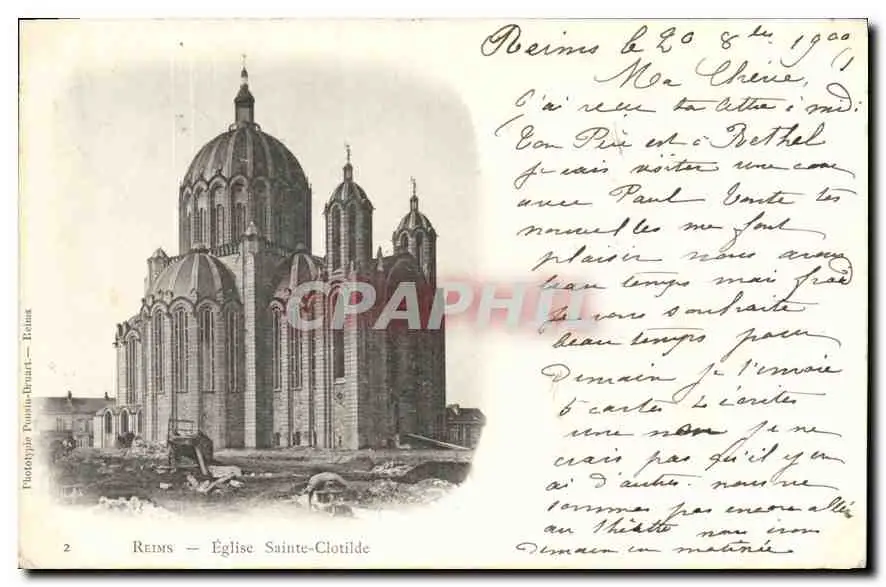 Reims le 20 8bre 1900
Ma Chérie,
J'ai reçu ta lettre à midi
Ton Père est à Rethel
je vais visiter une cave
avec Paul Toute tes
nouvelles me font
plaisir nous avons
beau temps mais froid
je vous souhaite
beau temps pour
Demain je t'envoie
5 cartes 2 écrites
une non je ne
crois pas qu'il y en
ai d'autres. nous ne
sommes pas encore allé
au théâtre nous irons
Demain en matinée
CAPHIL
Phototypie Ponsin-Druart. — Reims
2 REIMS — Église Sainte-Clotilde